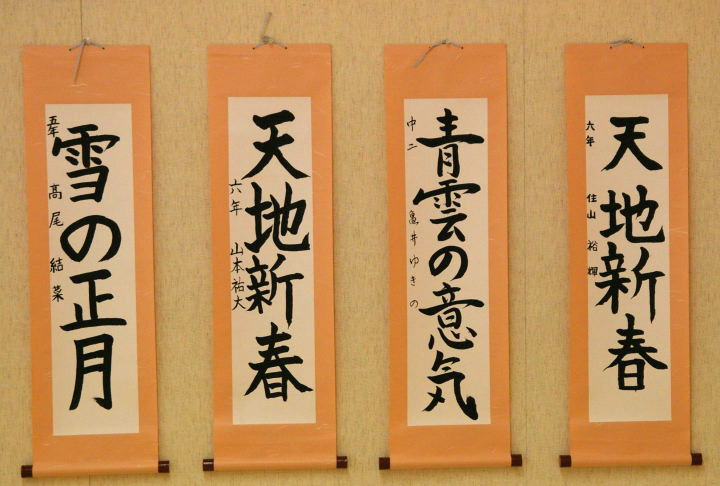 雪の正月
五年 高尾結菜
天地新春
六年 山本祐大
青雲の意気
中二 亀井ゆきの
天地新春
六年 住山裕輝